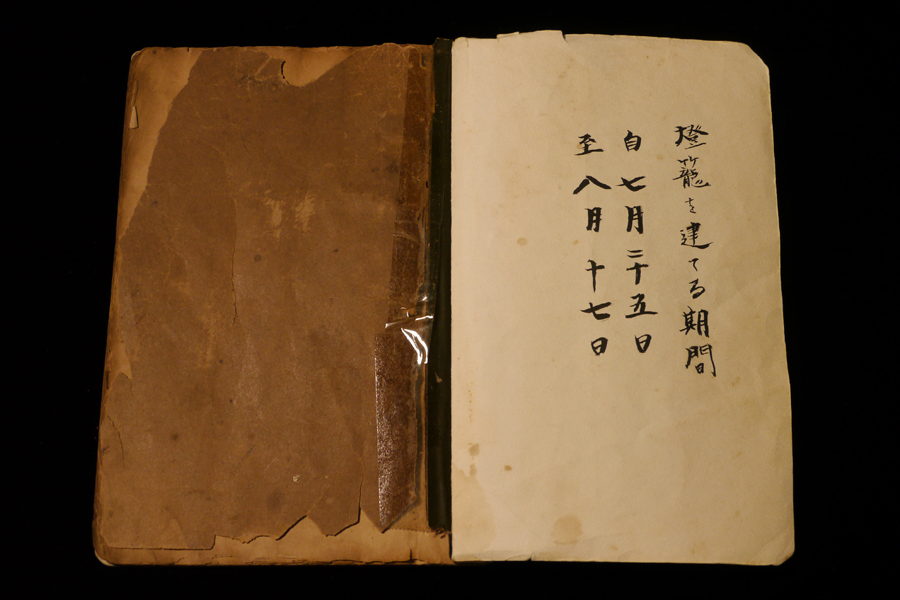 燈籠を建てる期間
自七月二十五日
至八月十七日